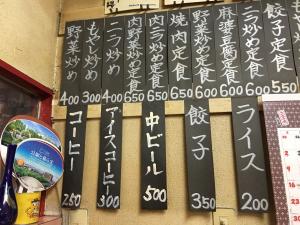 餃子定食 550
ニラ炒め定食 650
麻婆豆腐定食 650
野菜炒め定食 600
焼肉定食 650
肉ニラ炒め定食 650
肉野菜炒め定食 650
ニラ炒め 400
もやし炒め 300
野菜炒め 400
ライス 200
餃子 350
中ビール 500
アイスコーヒー 300
コーヒー 250